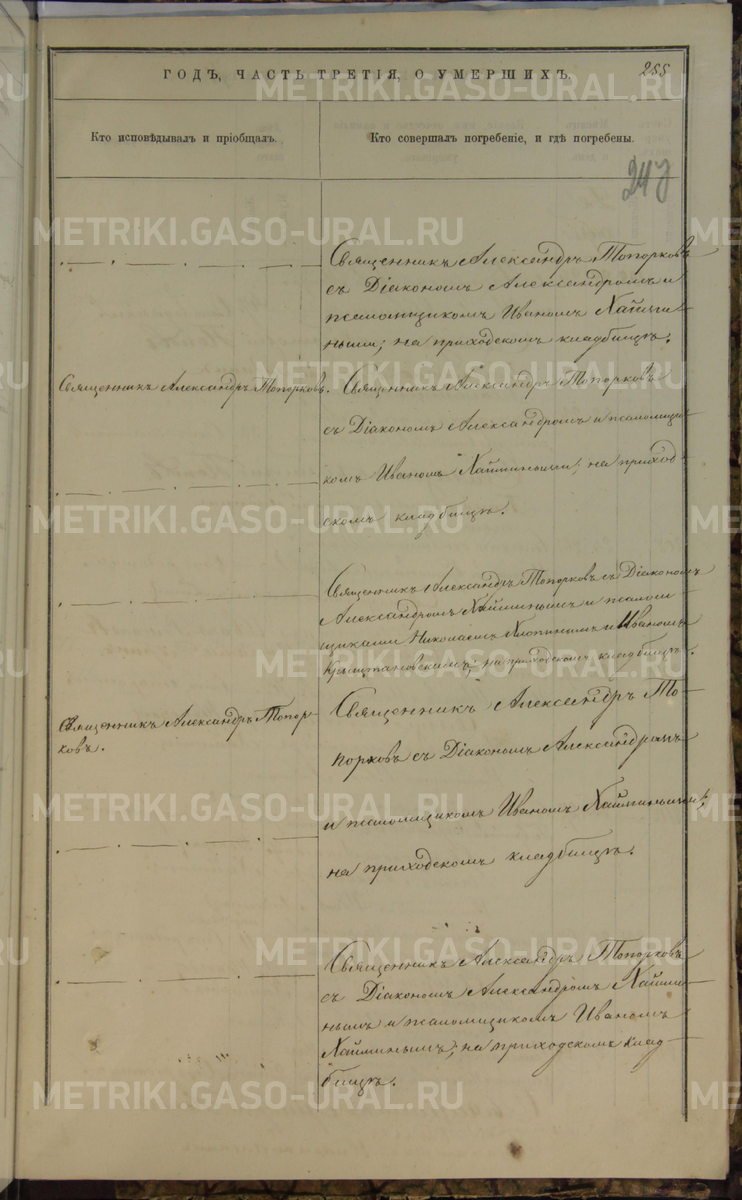 ГОДЪ, ЧАСТЬ ТРЕТІЯ, О УМЕРШИХЪ.
255
Кто исповѣдывалъ и пріобщалъ.
Кто совершалъ погребеніе, и гдѣ погребены.
Священникъ Александръ Топорковъ
съ Діакономъ Александромъ и
псаломщикомъ Иваномъ Хаймины-
ми; на приходскомъ кладбищѣ.
Священникъ Александръ Топорковъ.
Священникъ Александръ Топорковъ
съ Діакономъ Александромъ и псаломщи-
комъ Иваномъ Хаймиными; на приход-
скомъ кладбищѣ.
Священникъ Александръ Топорковъ съ Діакономъ
Александромъ Хайминымъ и псалом-
щиками Николаемъ Хлопинымъ и Иваномъ
на приходскомъ кладбищѣ.
Священникъ Александръ Топор-
ковъ.
Священникъ Александръ То-
порковъ съ Діакономъ Александромъ
и псаломщикомъ Иваномъ Хаймиными;
на приходскомъ кладбищѣ.
Священникъ Александръ Топорковъ
съ Діакономъ Александромъ Хайми-
нымъ и псаломщикомъ Иваномъ
Хайминымъ; на приходскомъ клад-
бищѣ.
METRIKI.GASO-URAL.RU